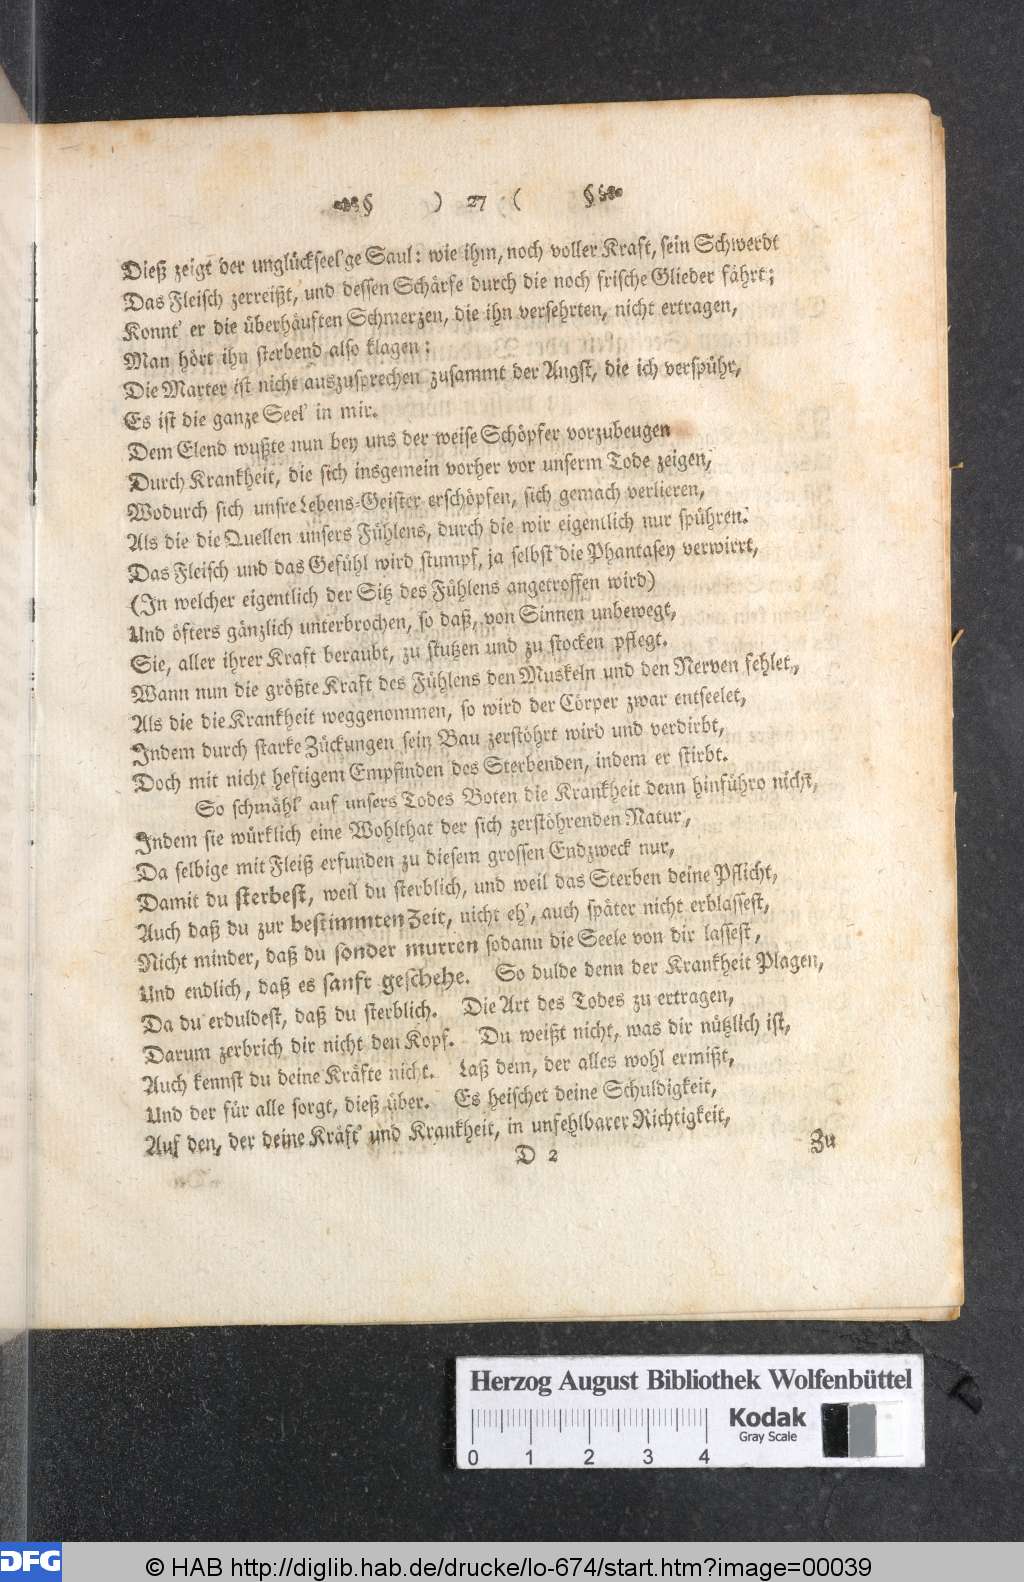 ) 27 (
Dieß zeigt der unglückseel'ge Saul: wie ihm, noch voller Kraft, sein Schwerdt
Das Fleisch zerreißt, und dessen Schärfe durch die noch frische Glieder fährt;
Konnt' er die überhäuften Schmerzen, die ihn versehrten, nicht ertragen,
Man hört ihn sterbend also klagen:
Die Marter ist nicht auszusprechen zusammt der Angst, die ich verspühr,
Es ist die ganze Seel' in mir.
Dem Elend wußte nun bey uns der weise Schöpfer vorzubeugen
Durch Krankheit, die sich insgemein vorher vor unserm Tode zeigen,
Wodurch sich unsre Lebens-Geister erschöpfen, sich gemach verlieren,
Als die die Quellen unsers Fühlens, durch die wir eigentlich nur spühren.
Das Fleisch und das Gefühl wird stumpf, ja selbst die Phantasey verwirrt,
(In welcher eigentlich der Sitz des Fühlens angetroffen wird)
Und öfters gänzlich unterbrochen, so daß, von Sinnen unbewegt,
Sie, aller ihrer Kraft beraubt, zu stutzen und zu stocken pflegt.
Wann nun die größte Kraft des Fühlens den Muskeln und den Nerven fehlet,
Als die die Krankheit weggenommen, so wird der Cörper zwar entseelet,
Indem durch starke Zückungen sein Bau zerstöhrt wird und verdirbt,
Doch mit nicht heftigem Empfinden des Sterbenden, indem er stirbt.
So schmähl' auf unsers Todes Boten die Krankheit denn hinführo nicht,
Indem sie würklich eine Wohlthat der sich zerstöhrenden Natur,
Da selbige mit Fleiß erfunden zu diesem grossen Endzweck nur,
Damit du sterbest, weil du sterblich, und weil das Sterben deine Pflicht,
Auch daß du zur bestimmten Zeit, nicht eh', auch später nicht erblassest,
Nicht minder, daß du sonder murren sodann die Seele von dir lassest,
Und endlich, daß es sanft geschehe. So dulde denn der Krankheit Plagen,
Da du erduldest, daß du sterblich. Die Art des Todes zu ertragen,
Darum zerbrich dir nicht den Kopf. Du weißt nicht, was dir nützlich ist,
Auch kennst du deine Kräfte nicht. Laß dem, der alles wohl ermißt,
Und der für alle sorgt, dieß über. Es heischet deine Schuldigkeit,
Auf den, der deine Kräft' und Krankheit, in unfehlbarer Richtigkeit,
D 2 Zu
Herzog August Bibliothek Wolfenbüttel
Kodak
Gray Scale
0 1 2 3 4
DFG © HAB http://diglib.hab.de/drucke/lo-674/start.htm?image=00039